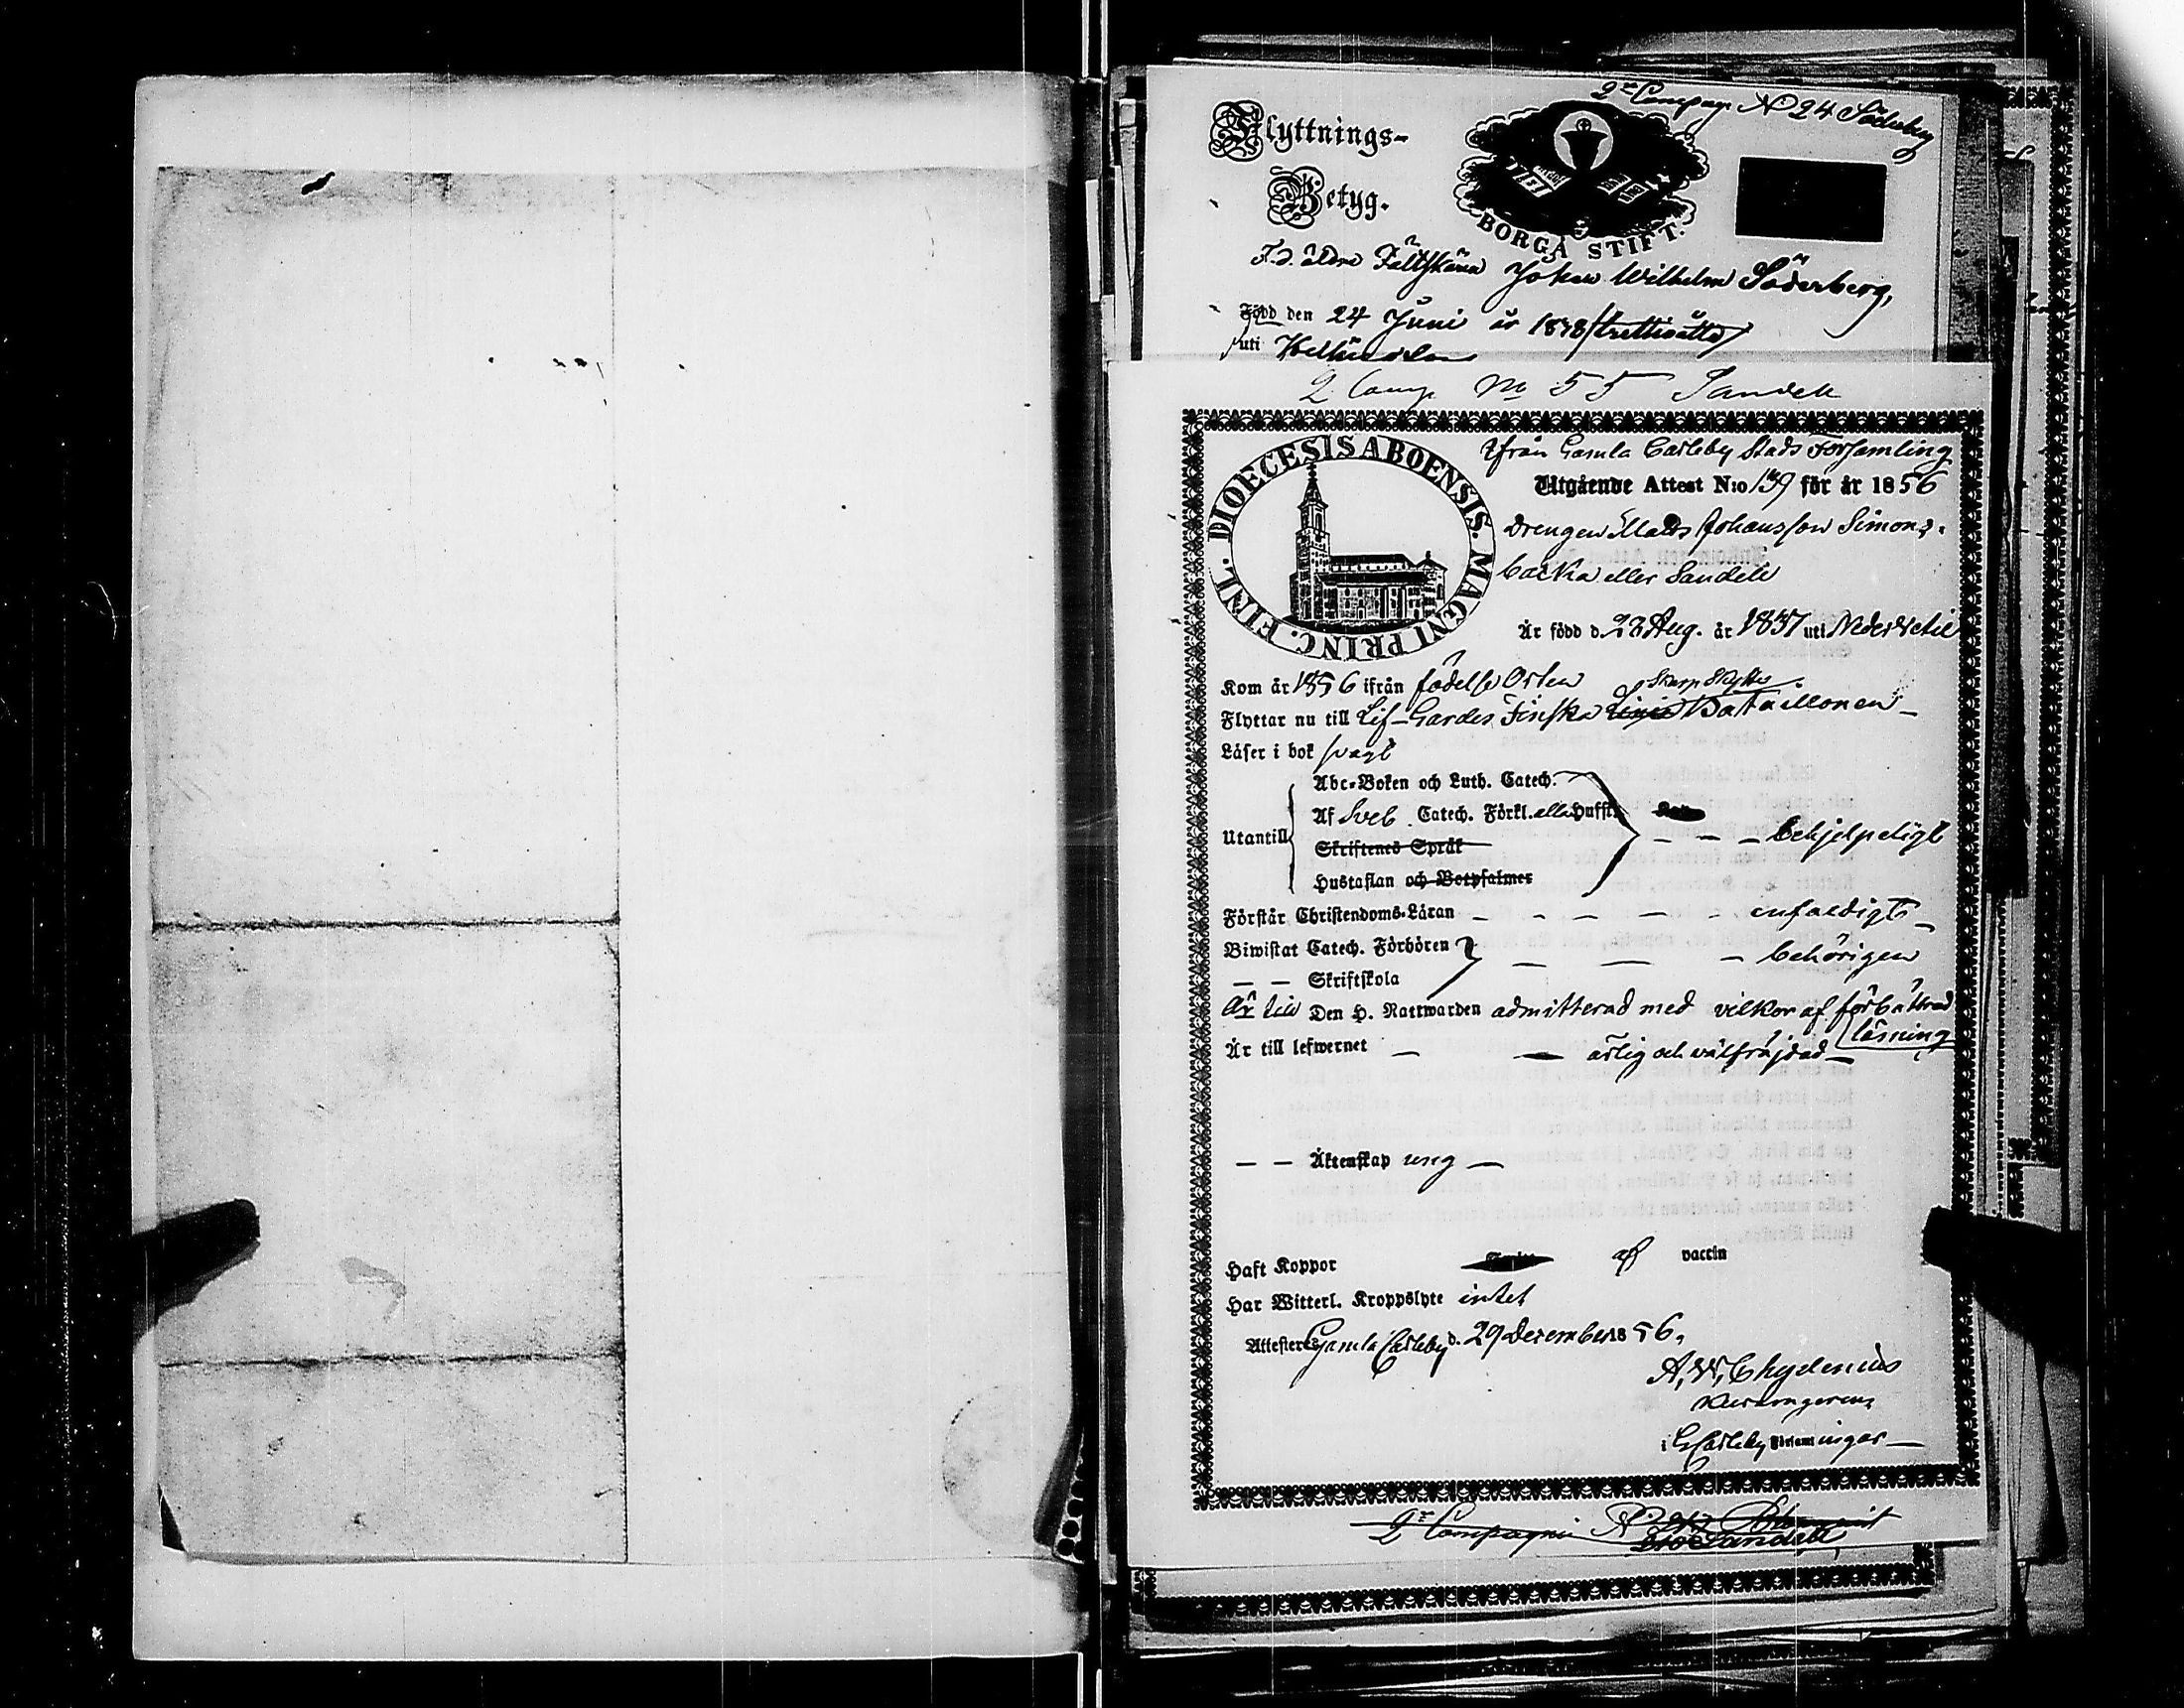 2:a Compag. No 24 Söderberg
Flyttnings-
Betyg.
BORGÅ STIFT.
F.d. äldre Fältskären Johan Wilhelm Söderberg,
Född den 24 Juni år 1838 (trettioåtta)
uti
2 Comp No 55 Sandell
Ifrån Gamla Carleby Stads Församling
DIOECESIS ABOENSIS. MAGNI PRINC. FINL.
Utgående Attest N:o 139 för år 1856
Drengen Matts Johansson Simons-
backa eller Sandell
Är född d. 23 Aug. år 1837 uti Nedervetil
Kom år 1856 ifrån födelse Orten
Skarp Skytte
Flyttar nu till Lif-Gardes Finska Linie Bataillonen
Läser i bok svagt
Abc-Boken och Luth. Catech.
Af Sveb. Catech. Förkl. eller Hufst.
Utantill
Skriftenes Språk
behjelpeligt
Hustaflan och Botpsalmer
Förstår Christendoms-Läran enfaldigt
Biwistat Catech. Förhören
behörigen
Skriftskola
Är till Den H. Nattwarden admitterad med vilkor af förbättrad
läsning
Är till lefwernet ärlig och välfräjdad
Äktenskap ung
Haft Koppor af vaccin
Har Witterl. Kroppslyte intet
Attesteras Gamla Carleby d. 29 December 1856.
A. W. Chydenius
i GCarleby Församlingar
2:a Compagnie No Sandell